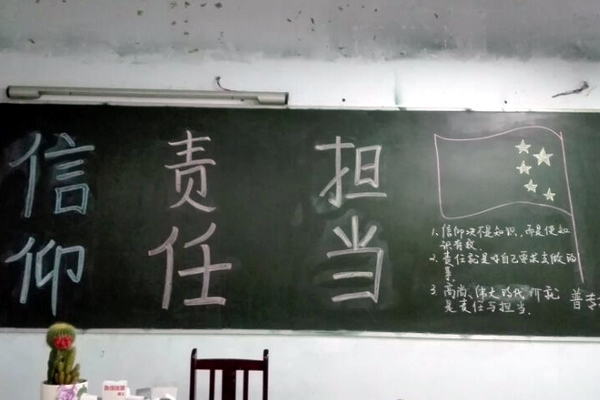 信仰
责任
担当
1.信仰决不是知识,而是使知
识有效.
2.责任就是对自己要求去做的
事.
3.高尚、伟大的代价就
是责任与担当.
普专